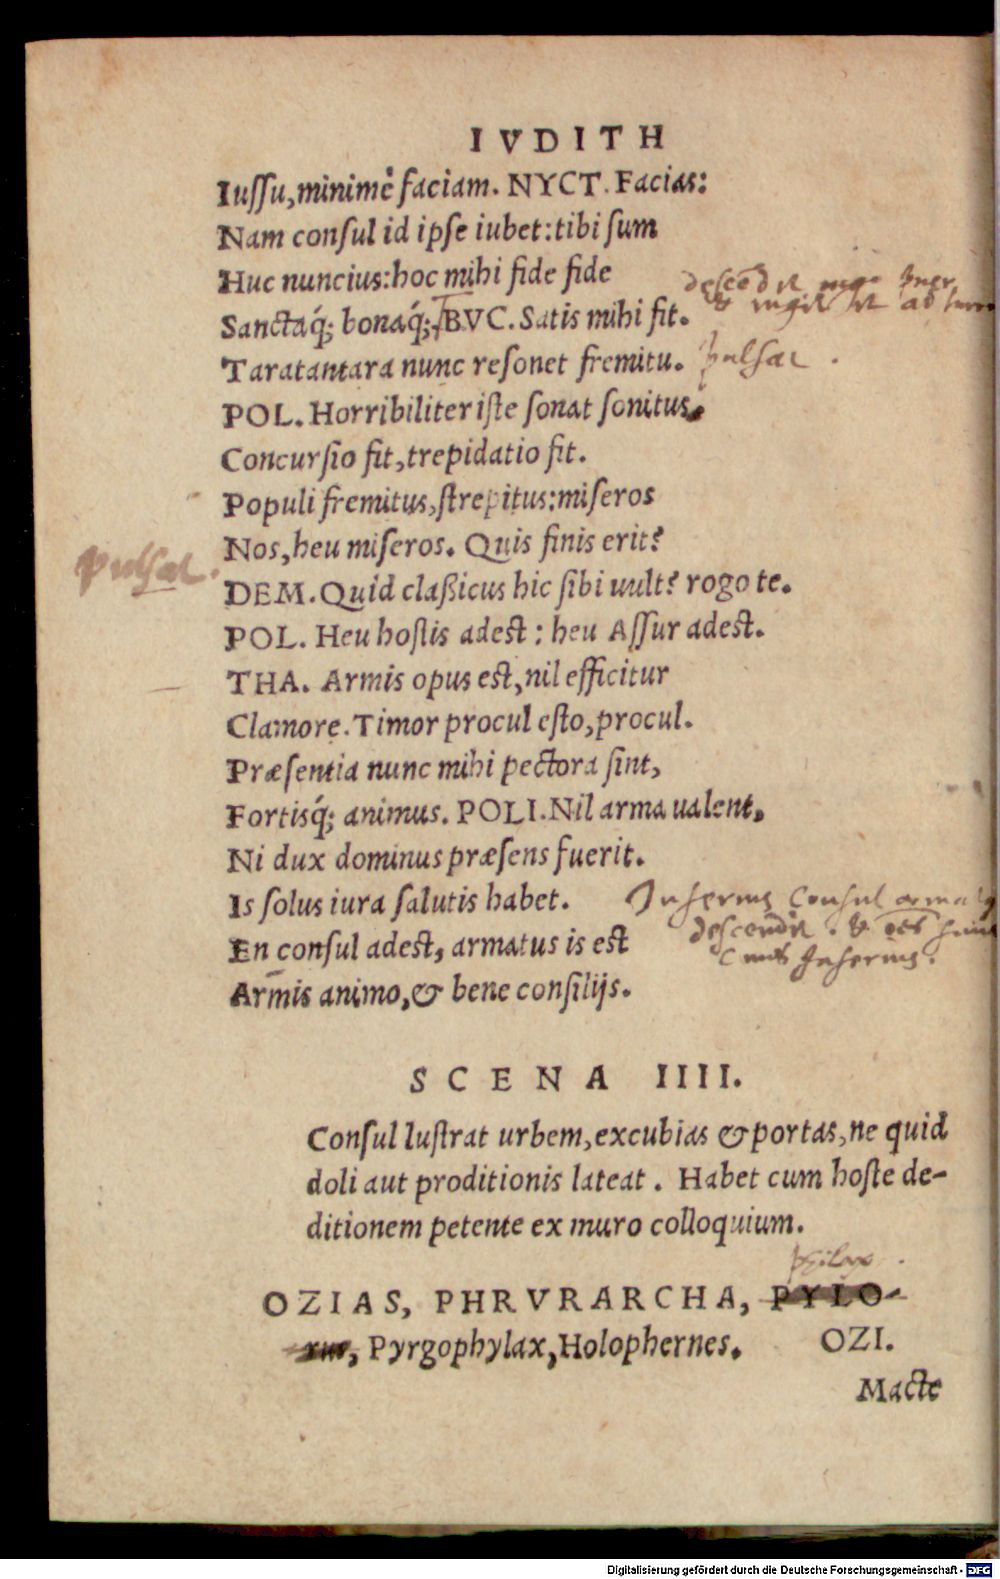 IVDITH
Iussu, minimè faciam. NYCT. Facias:
Nam consul id ipse iubet: tibi sum
Huc nuncius: hoc mihi fide fide
descēdit
Sanctaq́; bonaq́; BVC. Satis mihi fit.
& ad
Taratantara nunc resonet fremitu.
pulsat.
POL. Horribiliter iste sonat sonitus,
Concursio fit, trepidatio fit.
Populi fremitus, strepitus: miseros
Nos, heu miseros. Quis finis erit?
pulsat.
DEM. Quid claßicus hic sibi uult? rogo te.
POL. Heu hostis adest: heu Assur adest.
THA. Armis opus est, nil efficitur
Clamore. Timor procul esto, procul.
Præsentia nunc mihi pectora sint,
Fortisq́; animus. POLI. Nil arma ualent,
Ni dux dominus præsens fuerit.
Is solus iura salutis habet.
Inferius Consul armat9
En consul adest, armatus is est
descendit. & oēs
Armis animo, & bene consilijs.
inferius.
SCENA IIII.
Consul lustrat urbem, excubias & portas, ne quid
doli aut proditionis lateat. Habet cum hoste de-
ditionem petente ex muro colloquium.
OZIAS, PHRVRARCHA, PYLO-
rus, Pyrgophylax, Holophernes. OZI.
Macte
Digitalisierung gefördert durch die Deutsche Forschungsgemeinschaft - DFG